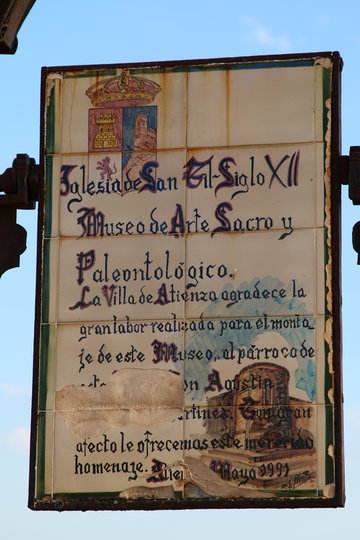 Iglesia de San Gil-Siglo XII
Museo de Arte Sacro y
Paleontológico.
La Villa de Atienza agradece la
gran labor realizada para el monta
je de este Museo, al párroco de
Agustín
Con gran
afecto le ofrecemos este merecido
homenaje. Mayo 1991